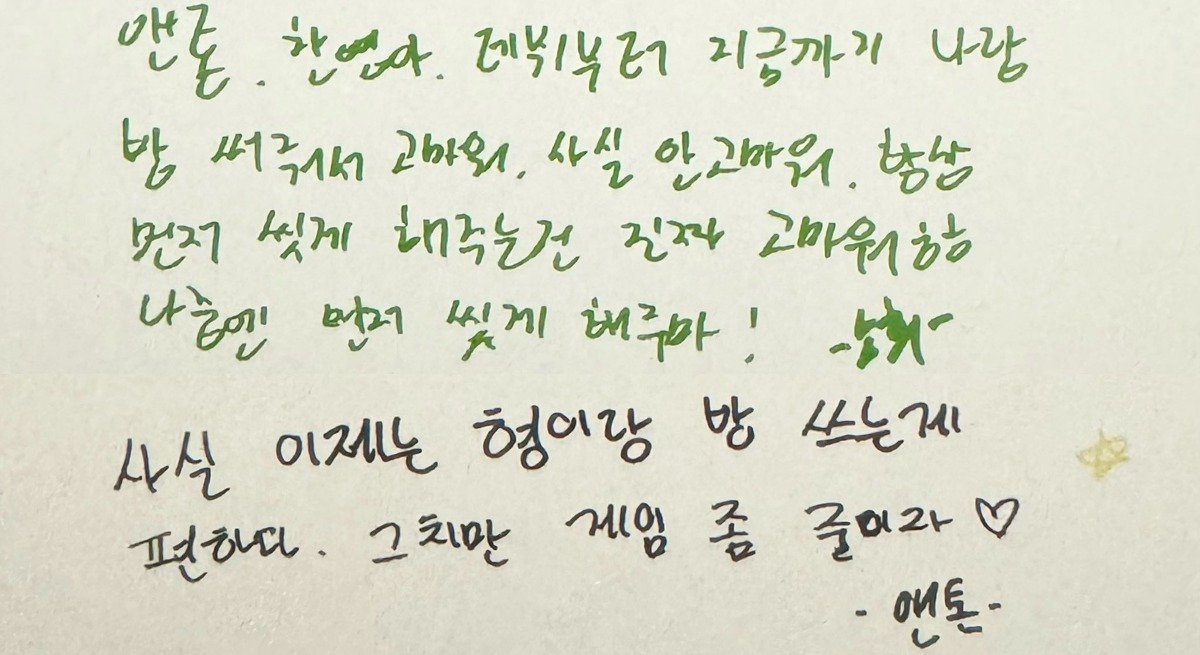 앤톤. 한연아. 데뷔부터 지금까지 나랑
방 써줘서 고마워. 사실 안고마워. 항상
먼저 씻게 해주는건 진짜 고마워하하
나중엔 먼저 씻게 해주마!
사실 이제는 형이랑 방 쓰는게
편하다. 그치만 게임 좀 줄이자 ♡
- 앤톤-